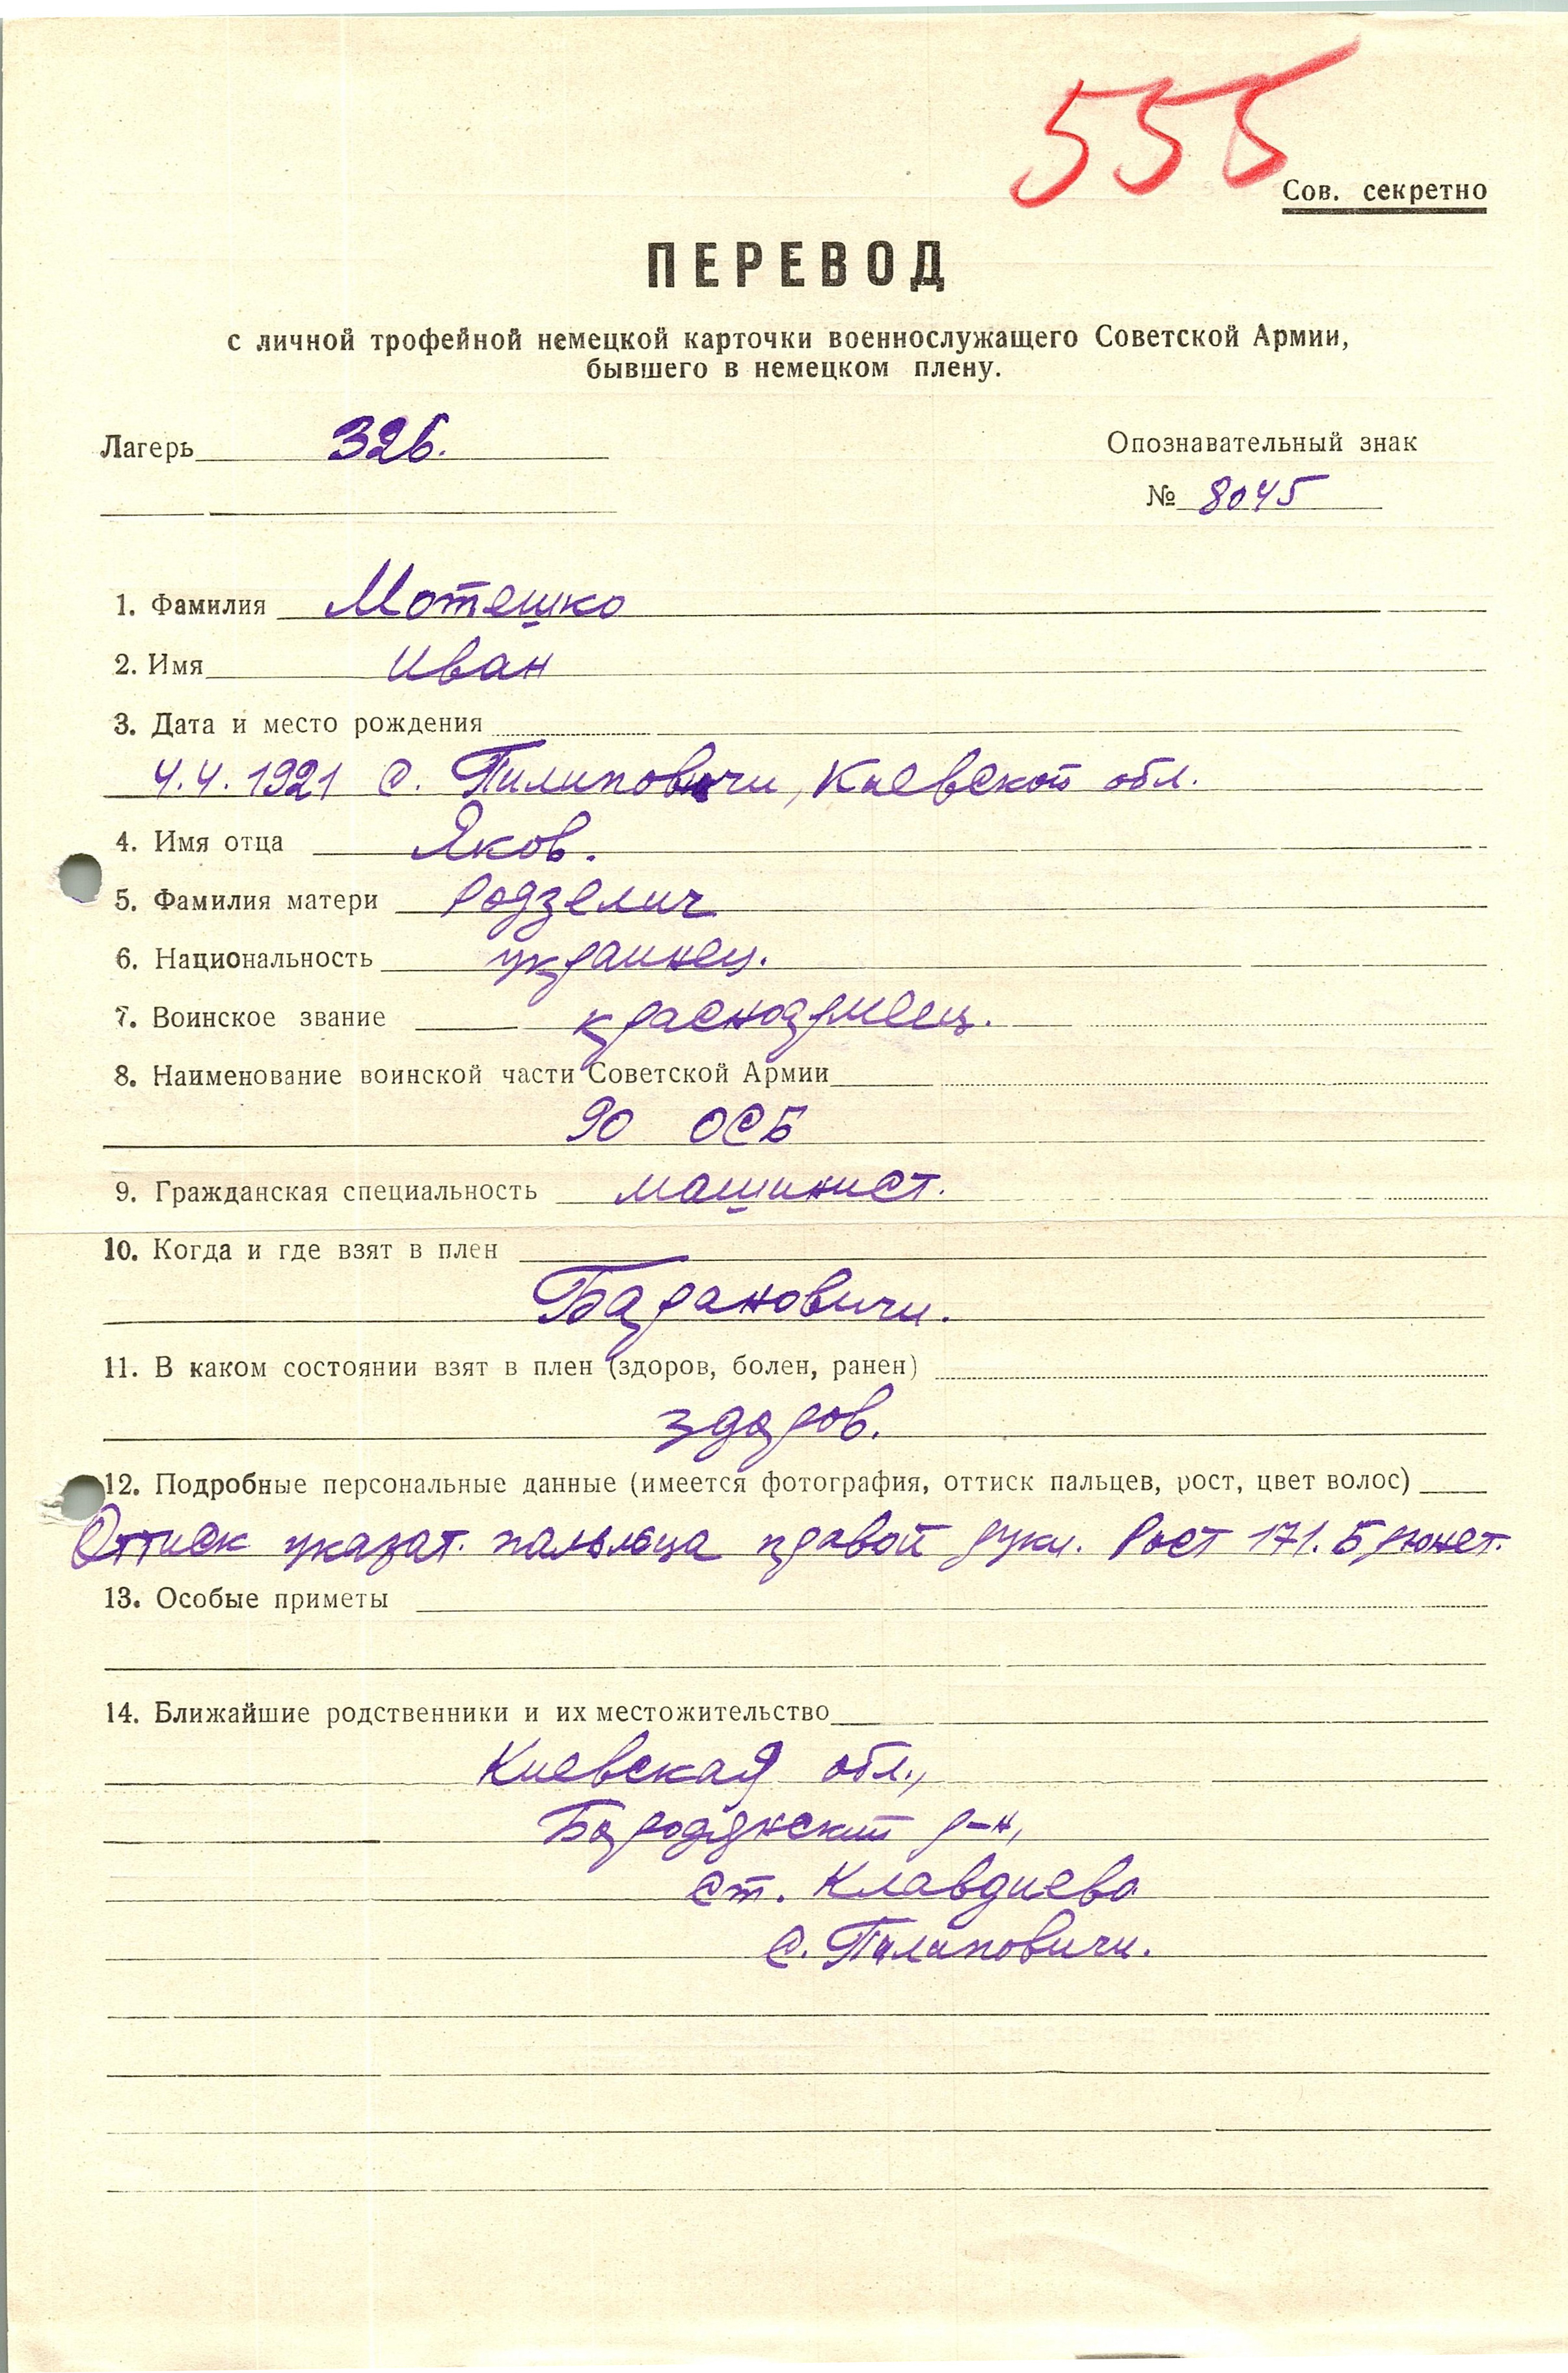 555
Сов. секретно
ПЕРЕВОД
с личной трофейной немецкой карточки военнослужащего Советской Армии,
бывшего в немецком плену.
Лагерь 326. Опознавательный знак
№ 8045
1. Фамилия Мотешко
2. Имя Иван
3. Дата и место рождения
4.4.1921 с. Пилиповичи, Киевской обл.
4. Имя отца Яков.
5. Фамилия матери Родзелич
6. Национальность украинец.
7. Воинское звание красноармеец.
8. Наименование воинской части Советской Армии
90 ОСБ
9. Гражданская специальность машинист.
10. Когда и где взят в плен
Барановичи.
11. В каком состоянии взят в плен (здоров, болен, ранен)
здоров.
12. Подробные персональные данные (имеется фотография, оттиск пальцев, рост, цвет волос)
Оттиск указат. пальца правой руки. Рост 171. Брюнет.
13. Особые приметы
14. Ближайшие родственники и их местожительство
Киевская обл.,
Бородянский р-н,
ст. Клавдиево
с. Пилиповичи.